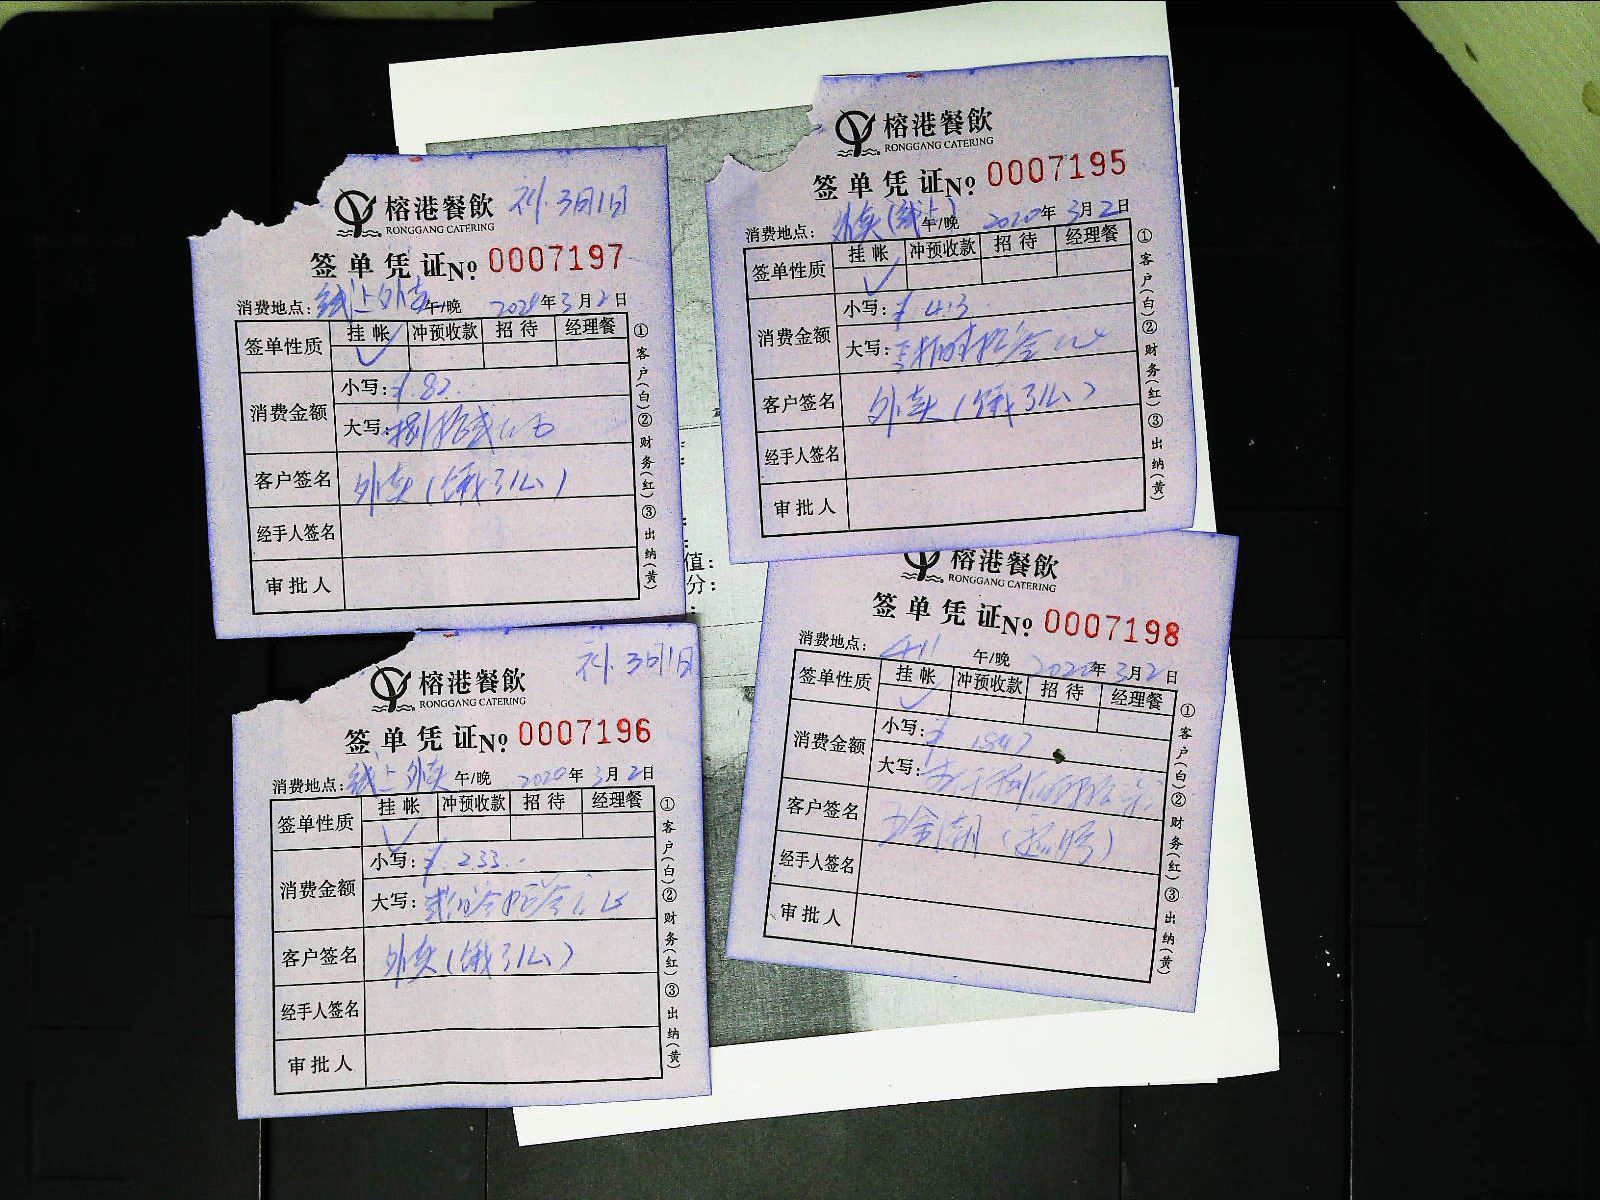 榕港餐飲 补.3月1日
RONGGANG CATERING
签单凭证No. 0007197
消费地点：线上外卖 午/晚 2020年3月2日
签单性质 挂帐 冲预收款 招待 经理餐
✓
消费金额 小写：¥.82.
大写：捌拾贰元
客户签名 外卖(饿了么)
经手人签名
审批人
①客户(白)②财务(红)③出纳(黄)
榕港餐飲
RONGGANG CATERING
签单凭证No. 0007195
消费地点：外卖(线上) 午/晚 2020年3月2日
签单性质 挂帐 冲预收款 招待 经理餐
✓
消费金额 小写：¥ 413.
大写：
客户签名 外卖(饿了么)
经手人签名
审批人
①客户(白)②财务(红)③出纳(黄)
值：
分：
榕港餐飲 补.3月1日
RONGGANG CATERING
签单凭证No. 0007196
消费地点：线上外卖 午/晚 2020年3月2日
签单性质 挂帐 冲预收款 招待 经理餐
✓
消费金额 小写：¥.233.-
大写：
客户签名 外卖(饿了么)
经手人签名
审批人
①客户(白)②财务(红)③出纳(黄)
榕港餐飲
RONGGANG CATERING
签单凭证No. 0007198
消费地点： 午/晚 2020年3月2日
签单性质 挂帐 冲预收款 招待 经理餐
✓
消费金额 小写：¥ 1847
大写：
客户签名
经手人签名
审批人
①客户(白)②财务(红)③出纳(黄)